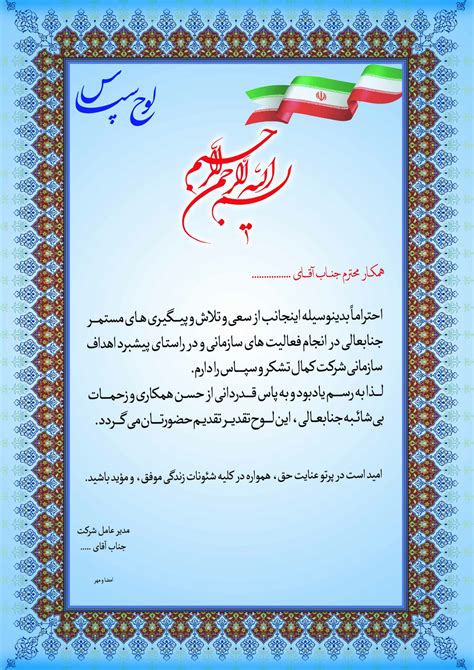 لوح سپاس
بسم الله الرحمن الرحیم
همکار محترم جناب آقای ................
احتراماً بدینوسیله اینجانب از سعی و تلاش و پیگیری های مستمر
جنابعالی در انجام فعالیت های سازمانی و در راستای پیشبرد اهداف
سازمانی شرکت کمال تشکر و سپاس را دارم.
لذا به رسم یادبود و به پاس قدردانی از حسن همکاری و زحمات
بی شائبه جنابعالی ، این لوح تقدیر تقدیم حضورتان می گردد.
امید است در پرتو عنایت حق ، همواره در کلیه شئونات زندگی موفق ، و مؤید باشید.
مدیر عامل شرکت
جناب آقای .....
امضا و مهر